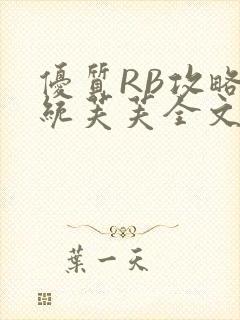 優質RB攻略
統芙芙全文
葉一天